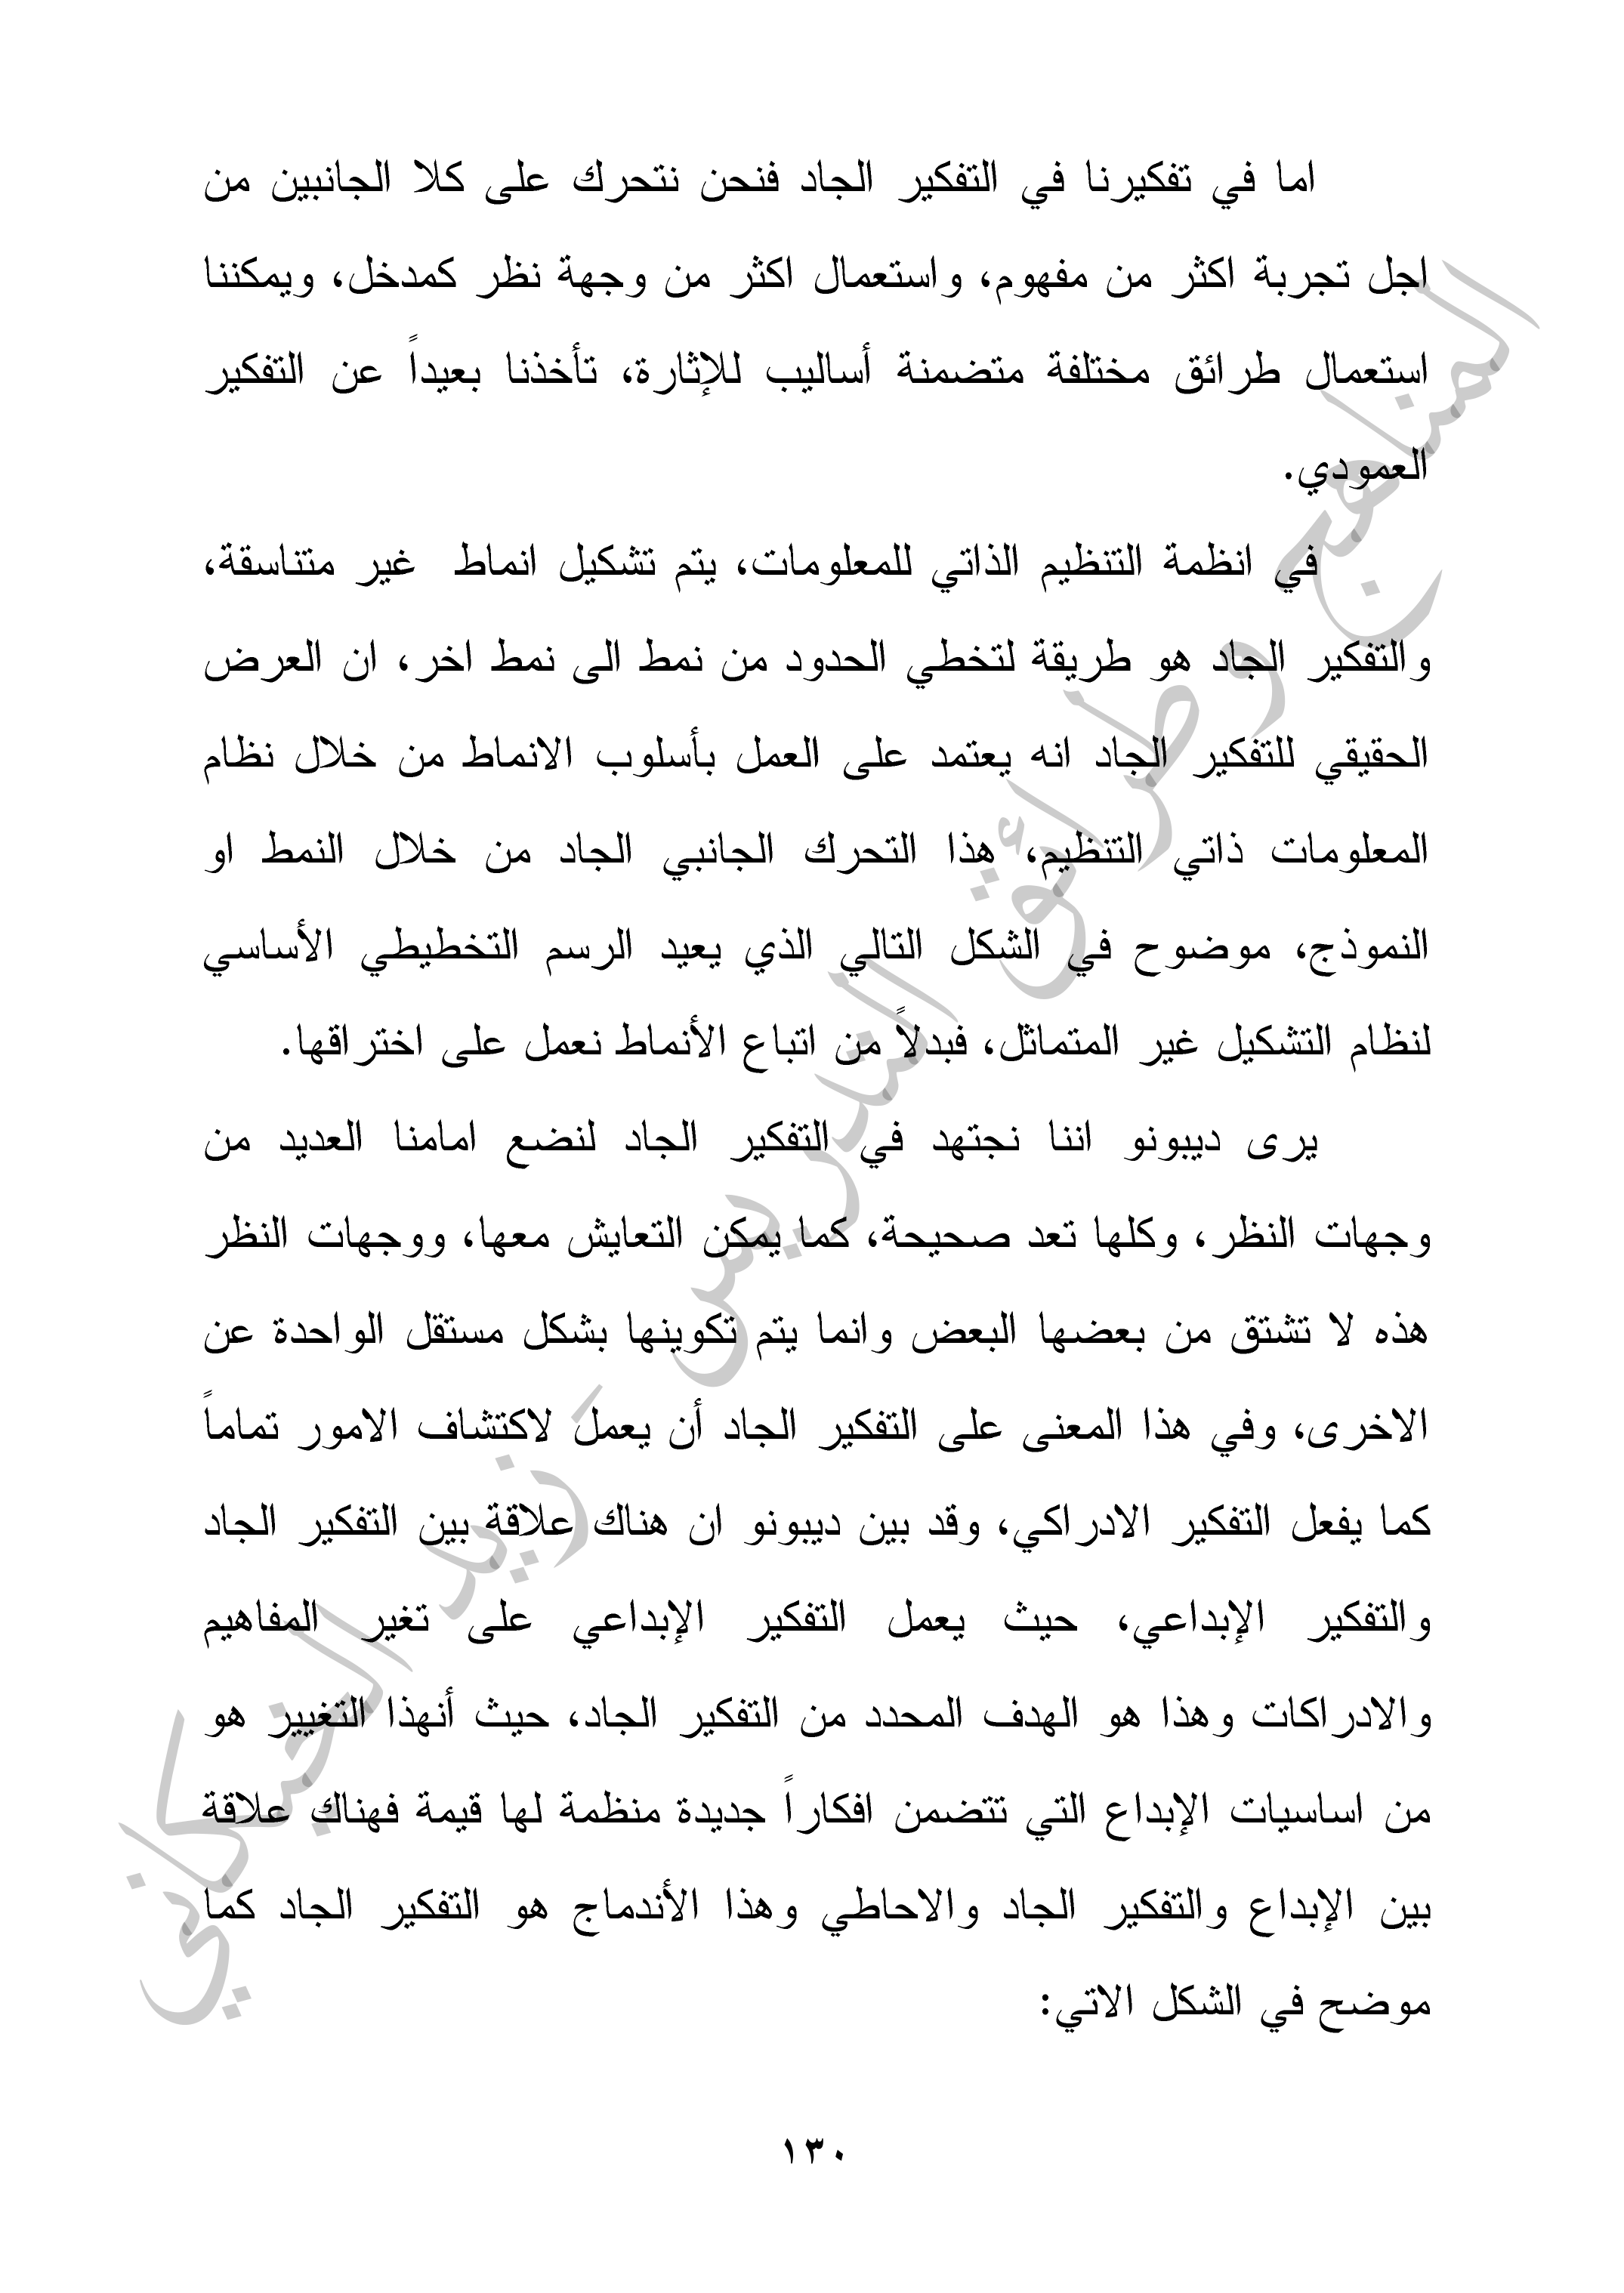 اما في تفكيرنا في التفكير الجاد فنحن نتحرك على كلا الجانبين من
اجل تجربة اكثر من مفهوم، واستعمال اكثر من وجهة نظر كمدخل، ويمكننا
استعمال طرائق مختلفة متضمنة أساليب للإثارة، تأخذنا بعيداً عن التفكير
العمودي.
في انظمة التنظيم الذاتي للمعلومات، يتم تشكيل انماط غير متناسقة،
والتفكير الجاد هو طريقة لتخطي الحدود من نمط الى نمط اخر، ان العرض
الحقيقي للتفكير الجاد انه يعتمد على العمل بأسلوب الانماط من خلال نظام
المعلومات ذاتي التنظيم، هذا التحرك الجانبي الجاد من خلال النمط او
النموذج، موضوح في الشكل التالي الذي يعيد الرسم التخطيطي الأساسي
لنظام التشكيل غير المتماثل، فبدلاً من اتباع الأنماط نعمل على اختراقها.
يرى ديبونو اننا نجتهد في التفكير الجاد لنضع امامنا العديد من
وجهات النظر، وكلها تعد صحيحة، كما يمكن التعايش معها، ووجهات النظر
هذه لا تشتق من بعضها البعض وانما يتم تكوينها بشكل مستقل الواحدة عن
الاخرى، وفي هذا المعنى على التفكير الجاد أن يعمل لاكتشاف الامور تماماً
كما يفعل التفكير الادراكي، وقد بين ديبونو ان هناك علاقة بين التفكير الجاد
والتفكير الإبداعي، حيث يعمل التفكير الإبداعي على تغير المفاهيم
والادراكات وهذا هو الهدف المحدد من التفكير الجاد، حيث أنهذا التغيير هو
من اساسيات الإبداع التي تتضمن افكاراً جديدة منظمة لها قيمة فهناك علاقة
بين الإبداع والتفكير الجاد والاحاطي وهذا الأندماج هو التفكير الجاد كما
موضح في الشكل الاتي:
١٣٠
المناهج وطرائق التدريس - زيد الخيكاني